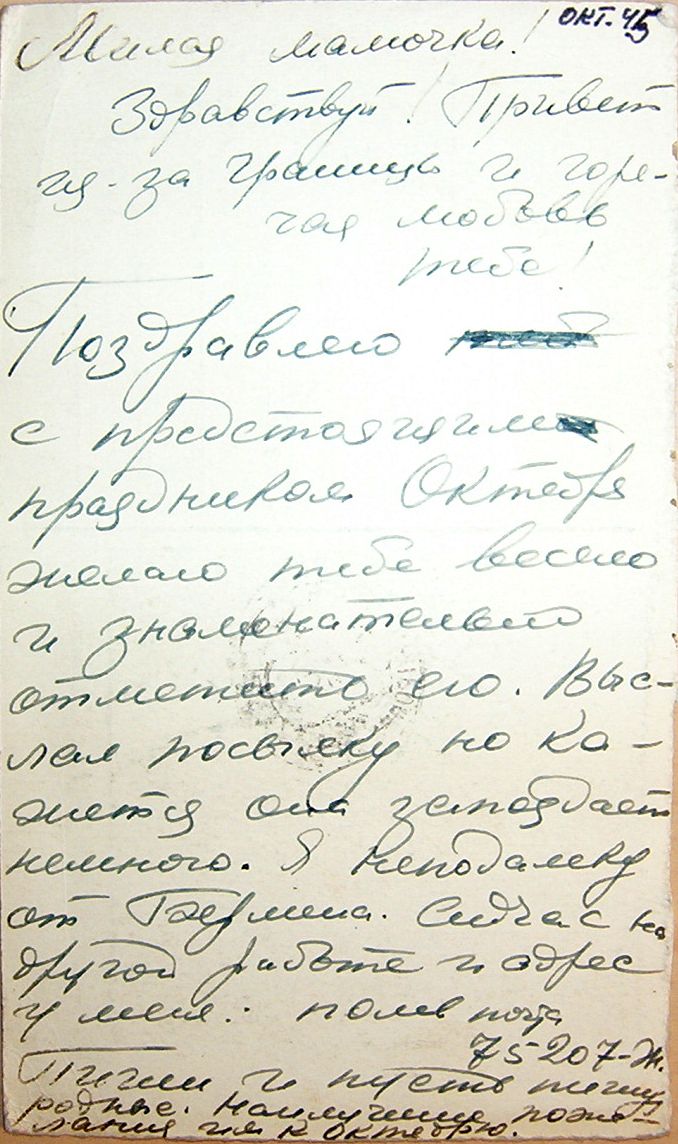 окт. 45
Милая мамочка!
Здравствуй! Привет
из-за границы и горя-
чая любовь
тебе!
Поздравляю
с предстоящим
праздником Октября
желаю тебе весело
и знаменательно
отметить его. Выс-
лал посылку но ка-
жется она запоздает
немного. Я неподалеку
от Берлина. Сейчас на
другой работе и адрес
у меня: полев почта
75207-Ж.
Пиши и пусть пишут
родные. Наилучшие поже-
лания им к Октябрю.